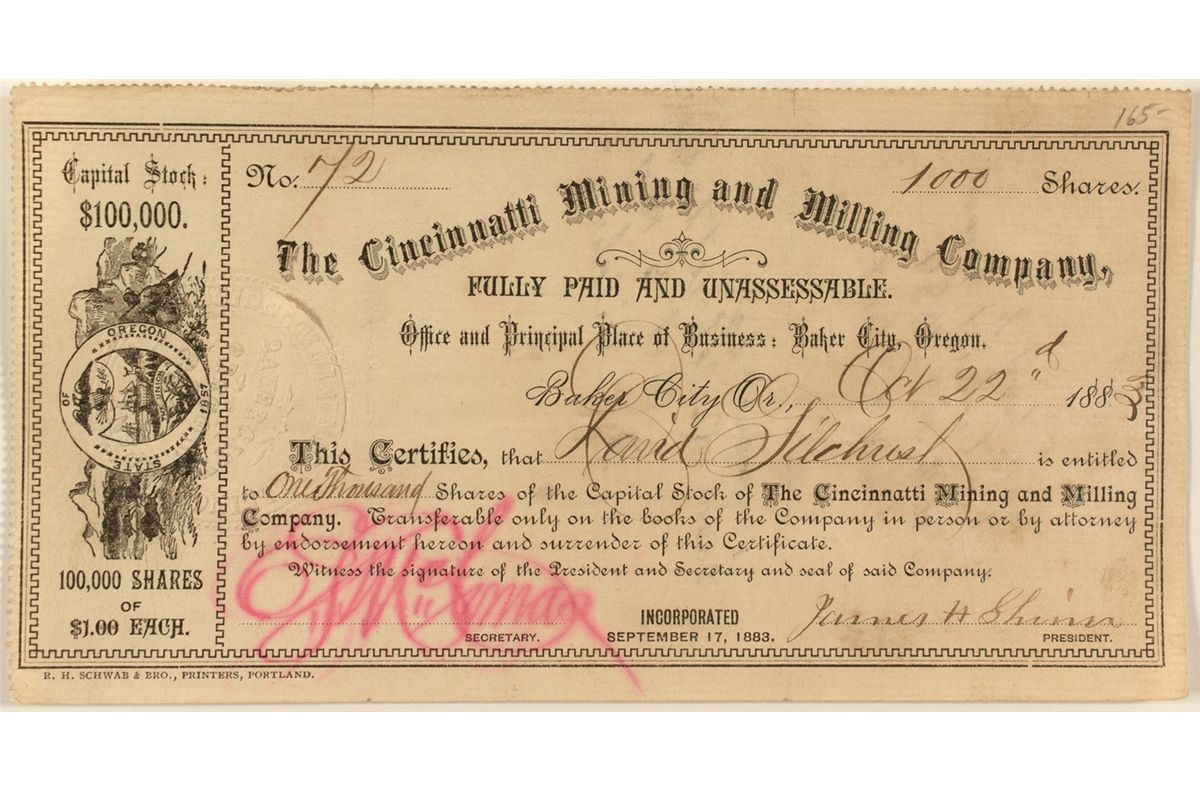 165-
Capital Stock:
$100,000.
STATE OF OREGON
1857
100,000 SHARES
OF
$1.00 EACH.
No. 72
1000 Shares.
The Cincinnatti Mining and Milling Company,
FULLY PAID AND UNASSESSABLE.
Office and Principal Place of Business: Baker City, Oregon.
Baker City Or., Oct 22"d 1883
This Certifies, that David Gilchrist is entitled
to One Thousand Shares of the Capital Stock of The Cincinnatti Mining and Milling
Company. Transferable only on the books of the Company in person or by attorney
by endorsement hereon and surrender of this Certificate.
Witness the signature of the President and Secretary and seal of said Company.
SECRETARY.
INCORPORATED
SEPTEMBER 17, 1883.
James H Shinn
PRESIDENT.
R. H. SCHWAB & BRO., PRINTERS, PORTLAND.